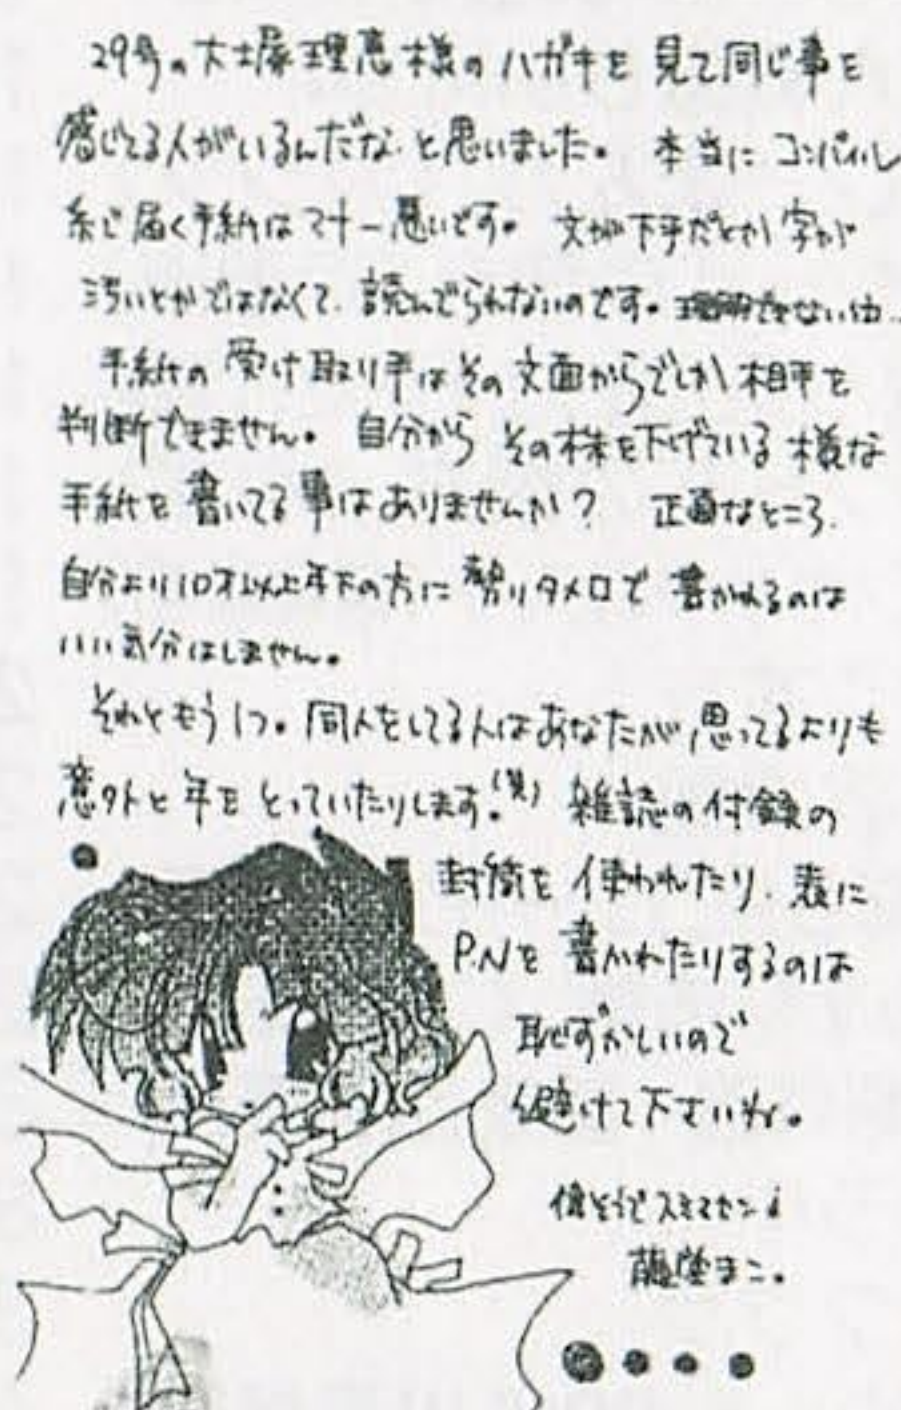 29号の大塚理恵様のハガキを見て同じ事を
感じてる人がいるんだな、と思いました。 本当にコンパイル
系で届く手紙はマナー悪いです。 文が下手だとか字が
汚いとかではなくて、読んでられないのです。理解できない
手紙の受け取り手はその文面からでしか相手を
判断できません。 自分からその株を下げている様な
手紙を書いてる事はありませんか? 正直なところ、
自分より10才以上年下の方に タメ口で書かれるのは
いい気分はしません。
それともう1つ。同人をしてる人はあなたが思ってるよりも
意外と年をとっていたりします。(笑) 雑誌の付録の
封筒を使われたり、表に
P.Nを書かれたりするのは
恥ずかしいので
避けて下さいね。
偉そうでスミマセン
藤堂まこ。